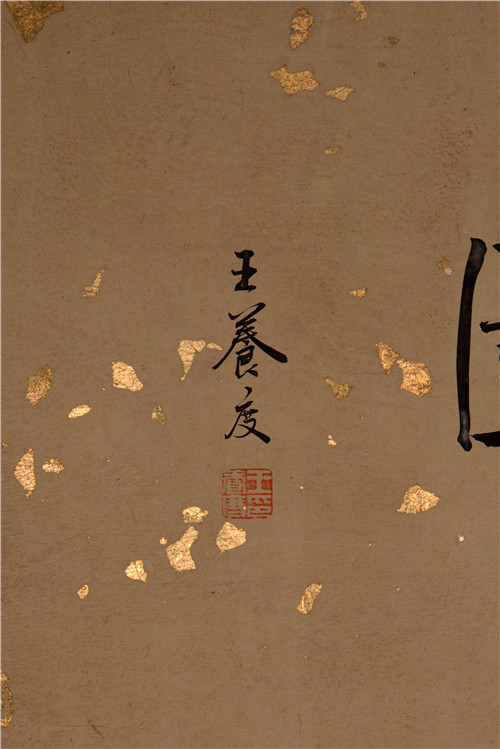 王養度